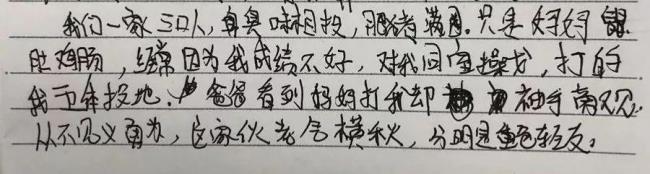 我们一家三口人，臭味相投，肥猪满圈。只是妈妈鼠
肚鸡肠，经常因为我成绩不好，对我同室操戈，打的
我五体投地。爸爸看到妈妈打我却袖手旁观。
从不见义勇为，这家伙老气横秋，分明是重色轻友。